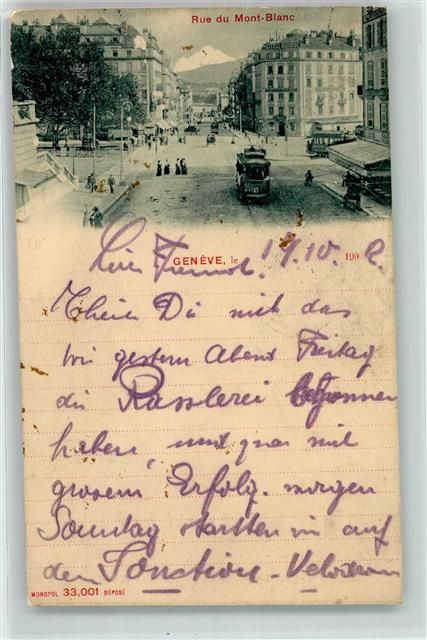 Rue du Mont-Blanc
GENÈVE, le 17/10. 190 2.
Lieber Freund!
Theile Dir mit das
wir gestern Abend Freitag
die Rasslerei begonnen
haben, und zwar mit
grossem Erfolg. morgen
Sonntag startten wir auf
dem Jonction-Velodrom
MONOPOL 33,001 DÉPOSÉ